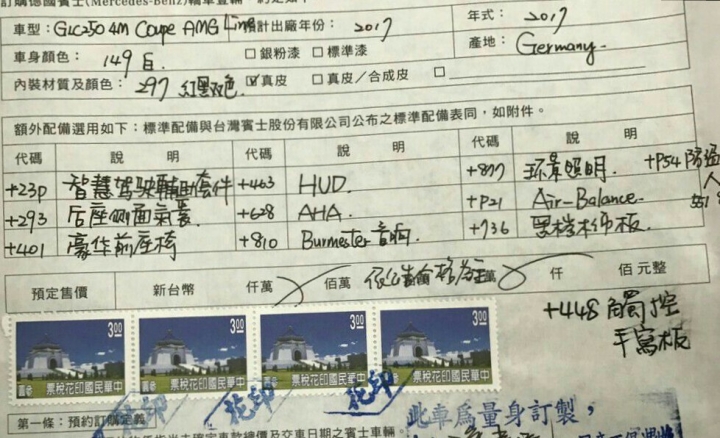 訂購德國賓士(Mercedes-Benz)轎車壹輛
車型：GLC250 4M Coupe AMG Line 預計出廠年份：2017 年式：2017
車身顏色：149 白 □銀粉漆 □標準漆 產地：Germany
內裝材質及顏色：297 紅黑双色 ☑真皮 □真皮／合成皮 □
額外配備選用如下：標準配備與台灣賓士股份有限公司公布之標準配備表同，如附件。
代碼 說 明 代碼 說 明 +877 环景照明 +P54 防盜
+23P 智慧駕駛輔助套件 +463 HUD. +P21 Air-Balance
+293 后座側面氣囊 +628 AHA. +736 黑梣木飾板
+401 豪华前座椅 +810 Burmester音响
預定售價 新台幣 仟萬 佰萬 萬 仟 佰元整
+448 觸控
手寫板
3.00 3.00 3.00 3.00
票稅花印國民華中 票稅花印國民華中 票稅花印國民華中 票稅花印國民華中
花印 花印
第一條：預約訂購定義
此車為量身訂製，